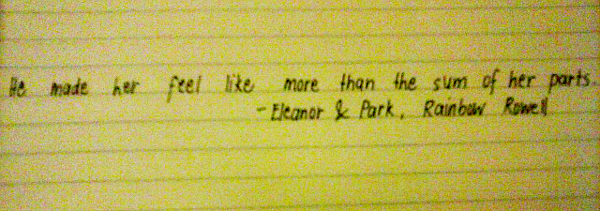 He made her feel like more than the sum of her parts.
- Eleanor & Park, Rainbow Rowell